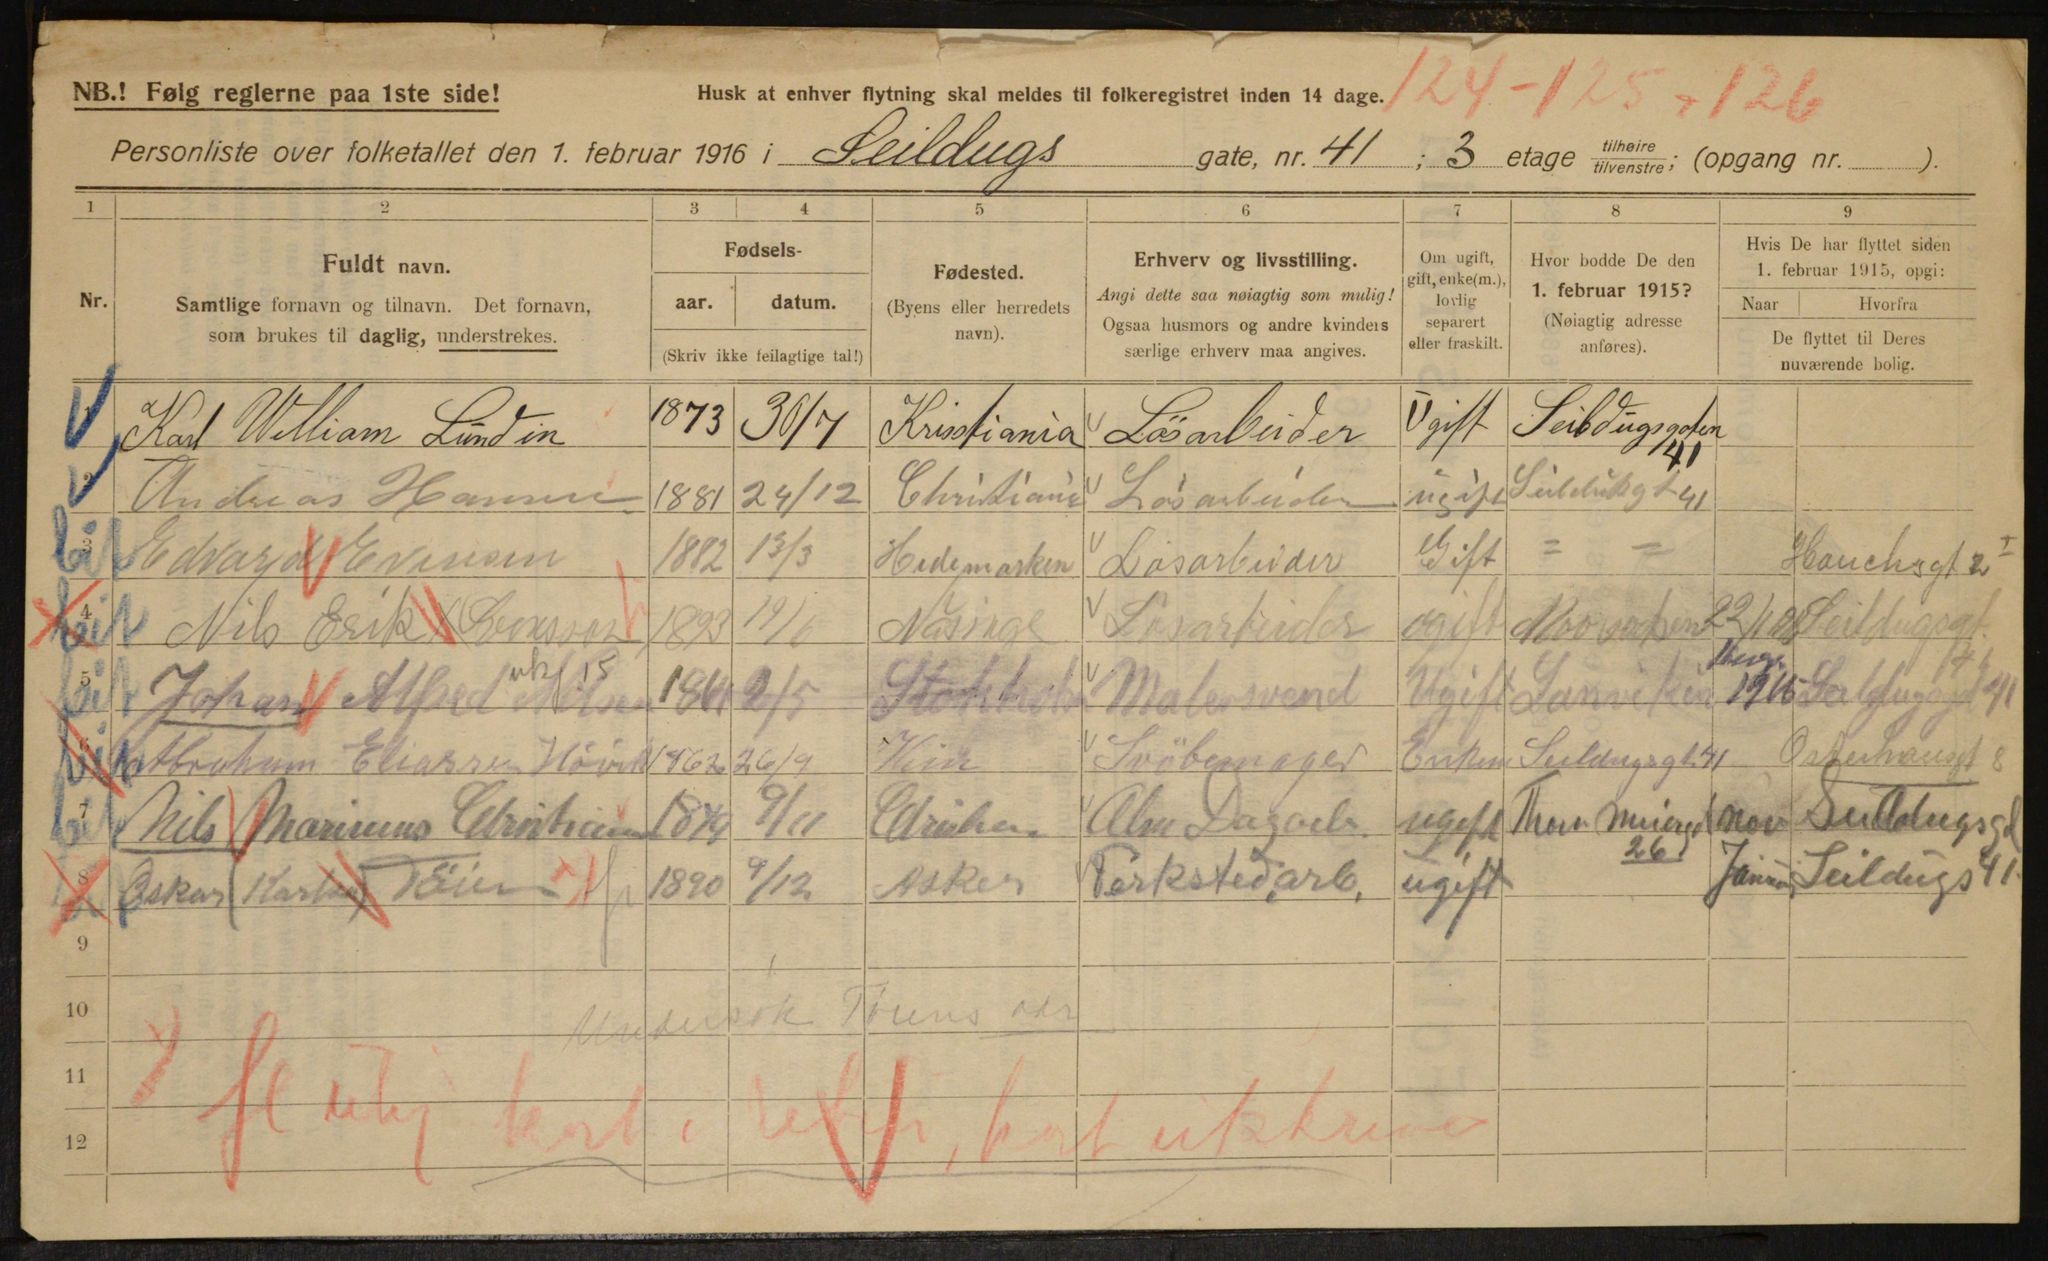 124-125 + 126
NB.! Følg reglerne paa 1ste side!
Husk at enhver flytning skal meldes til folkeregistret inden 14 dage.
Personliste over folketallet den 1. februar 1916 i Seildugs gate, nr. 41 ; 3 etage tilhøire/tilvenstre; (opgang nr. ........ ).
1 2 3 4 5 6 7 8 9
Nr.
Fuldt navn.
Samtlige fornavn og tilnavn. Det fornavn,
som brukes til daglig, understrekes.
Fødsels-
aar. datum.
(Skriv ikke feilagtige tal!)
Fødested.
(Byens eller herredets
navn).
Erhverv og livsstilling.
Angi dette saa nøiagtig som mulig!
Ogsaa husmors og andre kvinders
særlige erhverv maa angives.
Om ugift,
gift, enke(m.),
lovlig
separert
eller fraskilt.
Hvor bodde De den
1. februar 1915?
(Nøiagtig adresse
anføres).
Hvis De har flyttet siden
1. februar 1915, opgi:
Naar Hvorfra
De flyttet til Deres
nuværende bolig.
1 Karl William Lundin 1873 30/7 Kristiania Løsarbeider Ugift Seildugsgaten 41
2 Andreas Hansen 1881 24/12 Christiania Løsarbeider ugift Seilduksgt 41
3 Edvard Evensen 1882 13/3 Hedemarken Løsarbeider Gift = = Hauchsgt 2 I
4 Nils Erik 1893 19/1 Näsinge Løsarbeider ugift Seildugsgt.
5 Johan Alfred Nilsen 2/5 Stokholm Malersvend Ugift Sanviken 1915 Seildugsgt 41
6 Abraham Eliassen Høvik 1862 26/9 Kin Enkem Seildugsgt 41 Osterhausgt 8
7 Nils Marinius Christian 1879 9/11 Alm Dagarb. ugift Thorv Meiersgd 26 nov Seildugsgd
8 Oskar (Karlsen) Töien 1890 9/12 Asker Verkstedarb. ugift Januar Seildugs 41
9
10 Undersøk Töiens adr
11
12
kort i